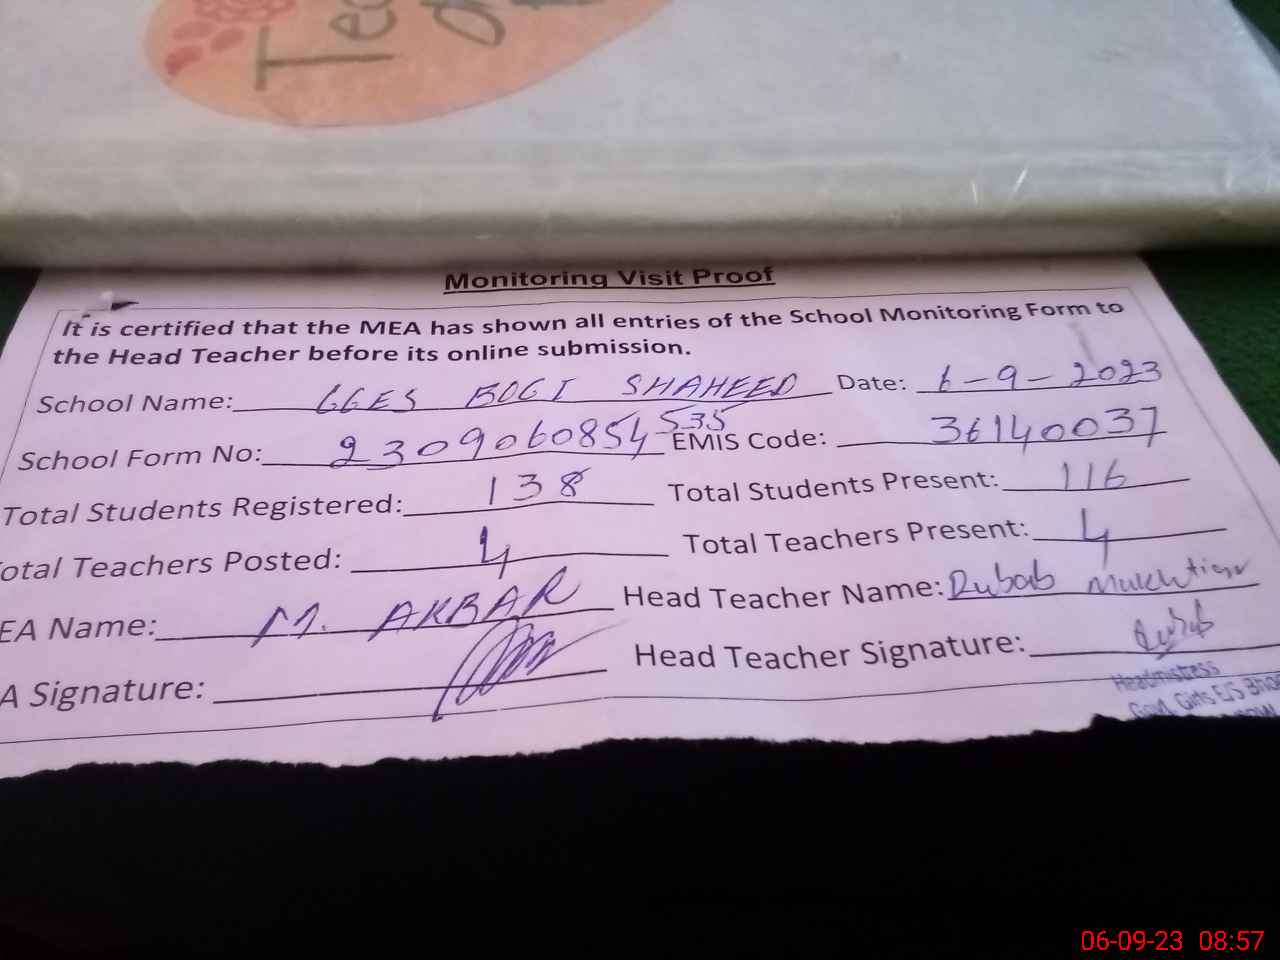 Tea
Monitoring Visit Proof
It is certified that the MEA has shown all entries of the School Monitoring Form to
the Head Teacher before its online submission.
School Name: GGES BOGI SHAHEED Date: 6-9-2023
School Form No: 2309060854535 EMIS Code: 36140037
Total Students Registered: 138 Total Students Present: 116
otal Teachers Posted: 4 Total Teachers Present: 4
EA Name: M. AKBAR Head Teacher Name: Rubab
A Signature: Head Teacher Signature: Rubab
Headmistress
Govt. Girls E/S
06-09-23 08:57